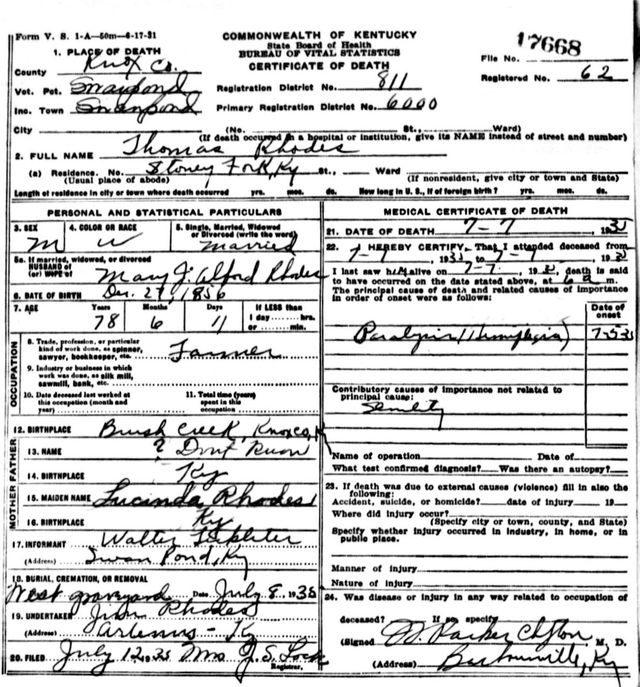 Form V. S. 1-A—50m—6-17-31
COMMONWEALTH OF KENTUCKY
State Board of Health
BUREAU OF VITAL STATISTICS
CERTIFICATE OF DEATH
17668
File No.
Registered No. 62
1. PLACE OF DEATH
County Knox Co.
Vot. Pct. Swanpond
Inc. Town Swanpond
Registration District No. 811
Primary Registration District No. 6000
City (No. St., Ward)
(If death occurred in a hospital or institution, give its NAME instead of street and number)
2. FULL NAME Thomas Rhodes
(a) Residence. No. Stoney Fork, Ky St., Ward
(Usual place of abode) (If nonresident, give city or town and State)
Length of residence in city or town where death occurred yrs. mos. ds. How long in U. S., if of foreign birth? yrs. mos. ds.
PERSONAL AND STATISTICAL PARTICULARS
3. SEX 4. COLOR OR RACE 5. Single, Married, Widowed
or Divorced (write the word)
M W Married
5a. If married, widowed, or divorced
HUSBAND of
(or) WIFE of Mary J. Alford Rhodes
6. DATE OF BIRTH Dec. 27, 1856
7. AGE Years Months Days If LESS than
1 day hrs.
or min.
78 6 11
OCCUPATION
8. Trade, profession, or particular
kind of work done, as spinner,
sawyer, bookkeeper, etc. Farmer
9. Industry or business in which
work was done, as silk mill,
sawmill, bank, etc.
10. Date deceased last worked at
this occupation (month and
year)
11. Total time (years)
spent in this
occupation
12. BIRTHPLACE Brush Creek, Knox Co, Ky
MOTHER FATHER
13. NAME ? Dont Know
14. BIRTHPLACE Ky
15. MAIDEN NAME Lucinda Rhodes
16. BIRTHPLACE Ky
17. INFORMANT Walter
(Address) Swan Pond, Ky
18. BURIAL, CREMATION, OR REMOVAL
West graveyard Date July 8, 1935
19. UNDERTAKER Jim Rhodes
(Address) Artemus - Ky
20. FILED July 12, 1935 Mrs J. S. Lock
Registrar.
MEDICAL CERTIFICATE OF DEATH
21. DATE OF DEATH 7-7 1935
22. I HEREBY CERTIFY, That I attended deceased from
7-7, 1935, to 7-7, 1935
I last saw him alive on 7-7, 1935, death is said
to have occurred on the date stated above, at 6 m.
The principal cause of death and related causes of importance
in order of onset were as follows:
Date of
onset
Paralysis (Hemiplegia) 7-5-35
Contributory causes of importance not related to
principal cause:
Senility
Name of operation Date of
What test confirmed diagnosis? Was there an autopsy?
23. If death was due to external causes (violence) fill in also the
following:
Accident, suicide, or homicide? date of injury 19
Where did injury occur?
(Specify city or town, county, and State)
Specify whether injury occurred in industry, in home, or in
public place.
Manner of injury
Nature of injury
24. Was disease or injury in any way related to occupation of
deceased? If so, specify
(Signed) Parker M. D.
(Address) Barbourville, Ky